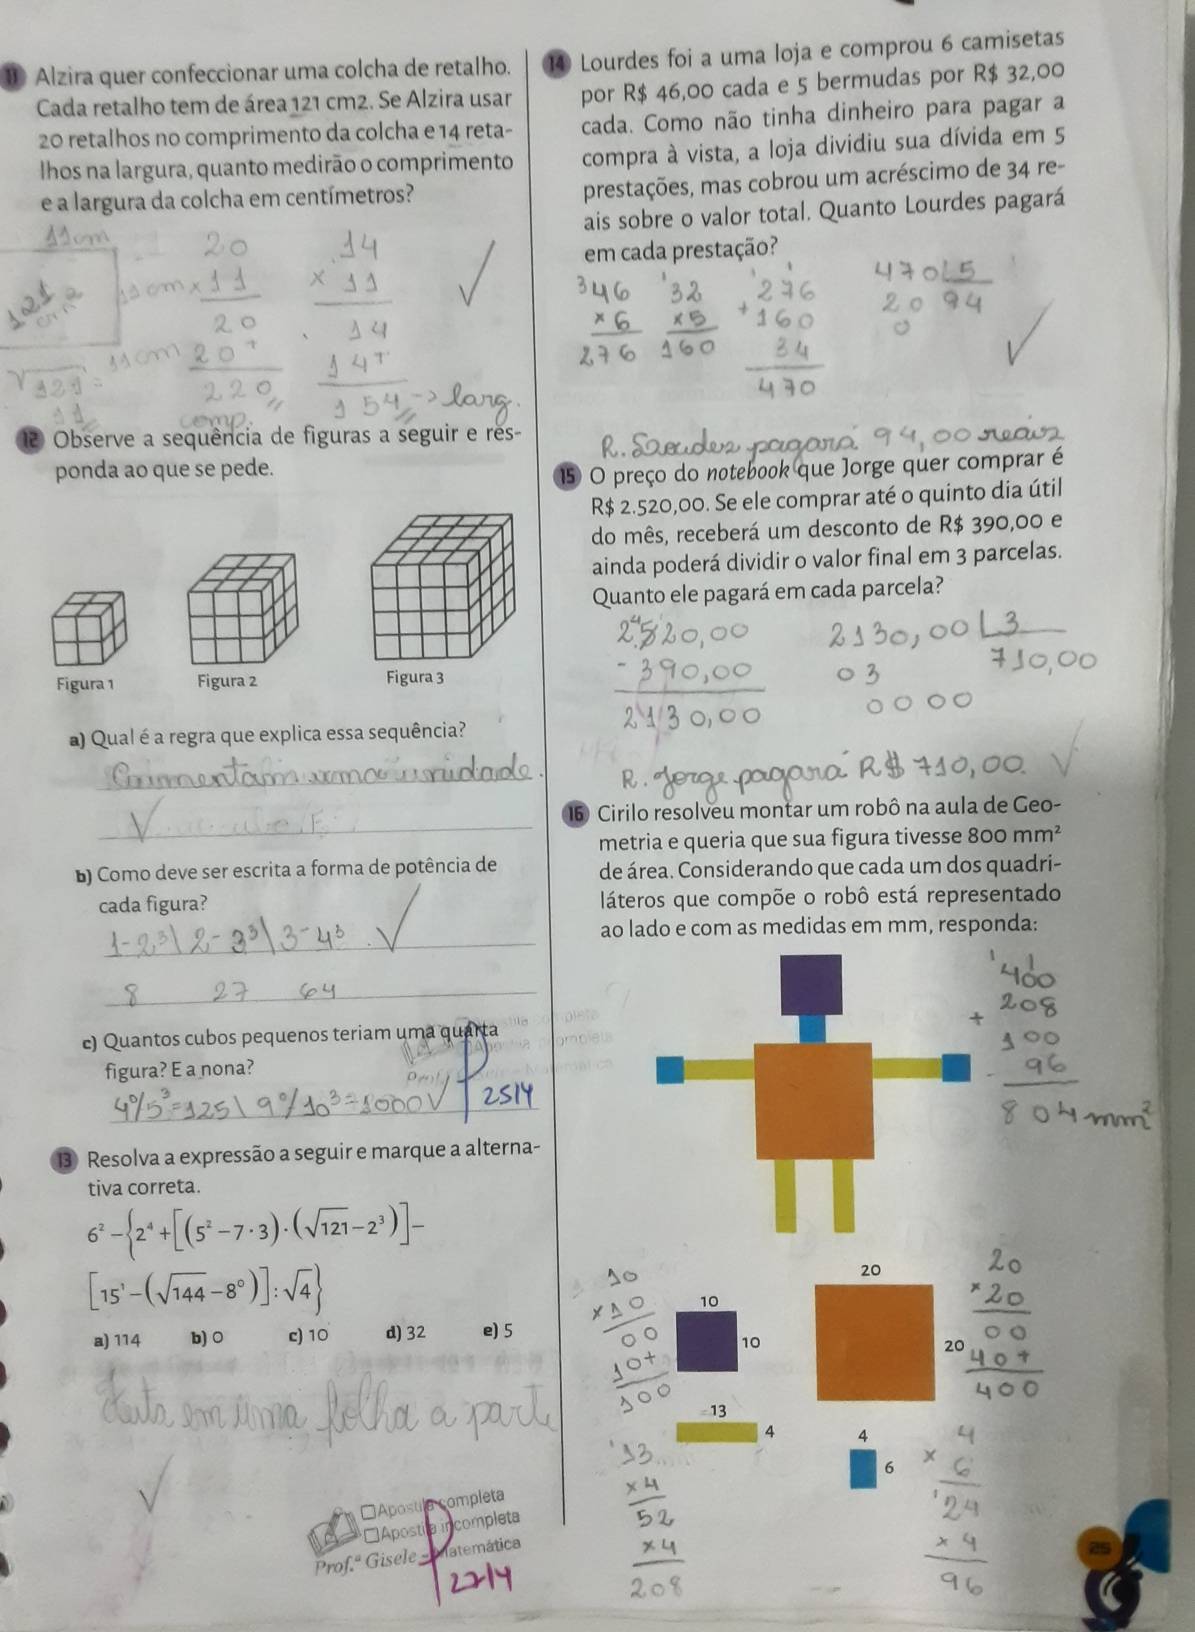 11 Alzira quer confeccionar uma colcha de retalho.
Cada retalho tem de área 121 cm2. Se Alzira usar
20 retalhos no comprimento da colcha e 14 reta-
lhos na largura, quanto medirão o comprimento
e a largura da colcha em centímetros?
11cm
121 cm2
11cm
√121 = 11cm
11
20
x 11
20
20+
220
comp.
14
x 11
14
14+
154 -> larg.
12 Observe a sequência de figuras a seguir e res-
ponda ao que se pede.
Figura 1
Figura 2
Figura 3
a) Qual é a regra que explica essa sequência?
uma unidade.
b) Como deve ser escrita a forma de potência de
cada figura?
1-2³\ 2-3³\ 3-4³.
8 27 64
c) Quantos cubos pequenos teriam uma quarta
figura? E a nona?
4º/5³=125\ 9º/10³=1000
25/4
13 Resolva a expressão a seguir e marque a alterna-
tiva correta.
6² - {2⁴ + [(5² - 7 · 3) · (√121 - 2³)] -
[15¹ - (√144 - 8⁰)] : √4}
a) 114 b) 0 c) 10 d) 32 e) 5
feita em uma folha a parte
Apostila completa
Apostila incompleta
Prof.ª Gisele - Matemática
22/4
14 Lourdes foi a uma loja e comprou 6 camisetas
por R$ 46,00 cada e 5 bermudas por R$ 32,00
cada. Como não tinha dinheiro para pagar a
compra à vista, a loja dividiu sua dívida em 5
prestações, mas cobrou um acréscimo de 34 re-
ais sobre o valor total. Quanto Lourdes pagará
em cada prestação?
³46
x6
276
¹32
x5
160
276
+160
34
470
470 5
20 94
0
R. pagará 94,00 reais
15 O preço do notebook que Jorge quer comprar é
R$ 2.520,00. Se ele comprar até o quinto dia útil
do mês, receberá um desconto de R$ 390,00 e
ainda poderá dividir o valor final em 3 parcelas.
Quanto ele pagará em cada parcela?
2.520,00
- 390,00
2130,00
2130,00 3
03 710,00
0000
R. Jorge pagará R$ 710,00.
16 Cirilo resolveu montar um robô na aula de Geo-
metria e queria que sua figura tivesse 800 mm²
de área. Considerando que cada um dos quadri-
láteros que compõe o robô está representado
ao lado e com as medidas em mm, responda:
400
+ 208
100
96
804 mm²
10
x10
00
10+
100
10
10
20
20
20
x20
00
40+
400
13
4
13
x4
52
x4
208
4
6
4
x 6
24
x 4
96
25